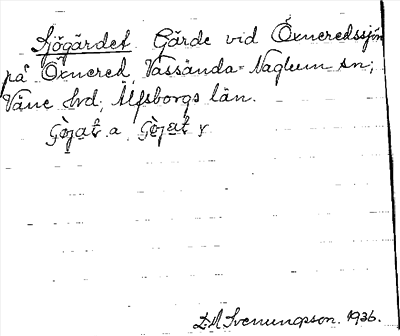 Sjögärdet Gärde vid Öxneredssjön
på Öxnered, Vassända-Naglum sn;
Väne hrd, Älfsborgs län.
a y
D.A. Svenungsson. 1936.